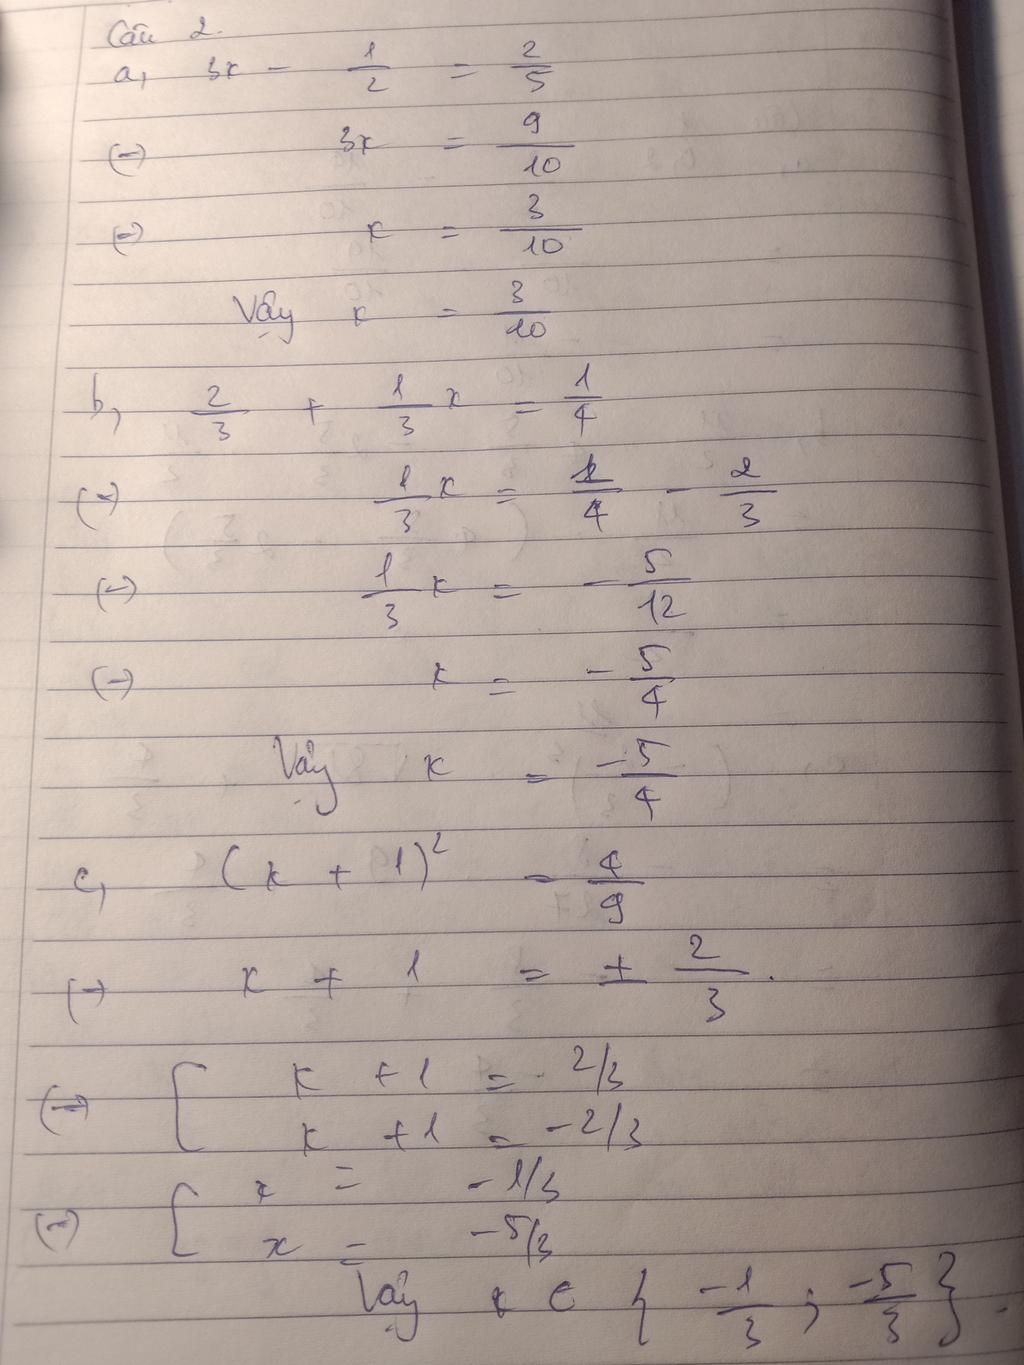 Câu 2.
a, 3x - 1/2 = 2/5
(=) 3x = 9/10
(=) x = 3/10
Vậy x = 3/10
b, 2/3 + 1/3 x = 1/4
(=) 1/3 x = 1/4 - 2/3
(=) 1/3 x = - 5/12
(=) x = - 5/4
Vậy x = -5/4
c, (x + 1)² = 4/9
(=) x + 1 = ± 2/3.
(=) [ x + 1 = 2/3
x + 1 = -2/3
(=) [ x = -1/3
x = -5/3
Vậy x ∈ { -1/3 ; -5/3 }.